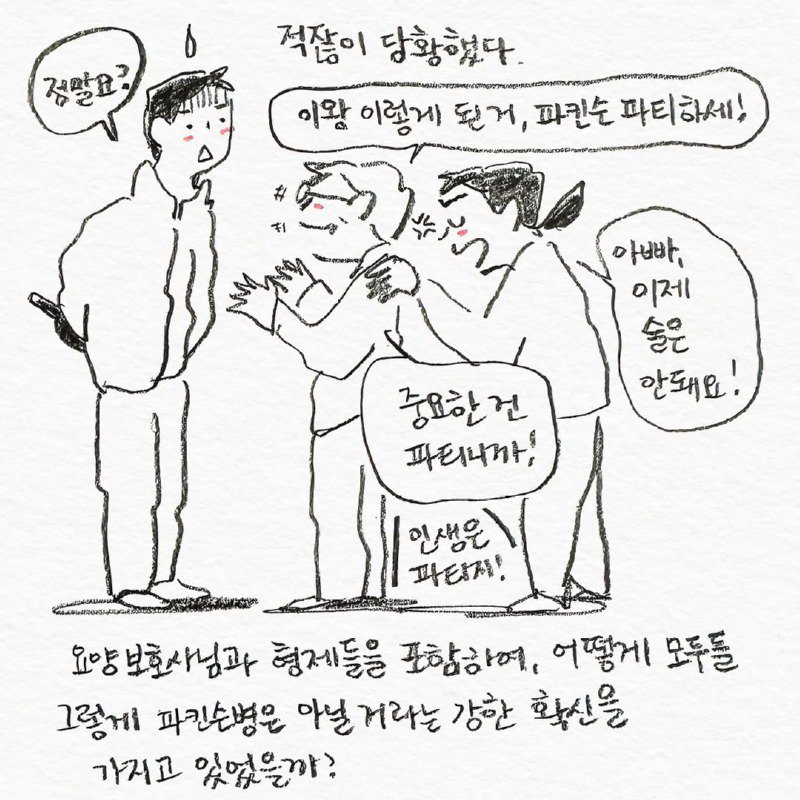 적잖이 당황했다.
정말요?
이왕 이렇게 된 거, 파킨슨 파티하세!
아빠,
이제
술은
안돼요!
중요한 건
파티니까!
인생은
파티지!
요양보호사님과 형제들을 포함하여, 어떻게 모두들
그렇게 파킨슨병은 아닐 거라는 강한 확신을
가지고 있었을까?